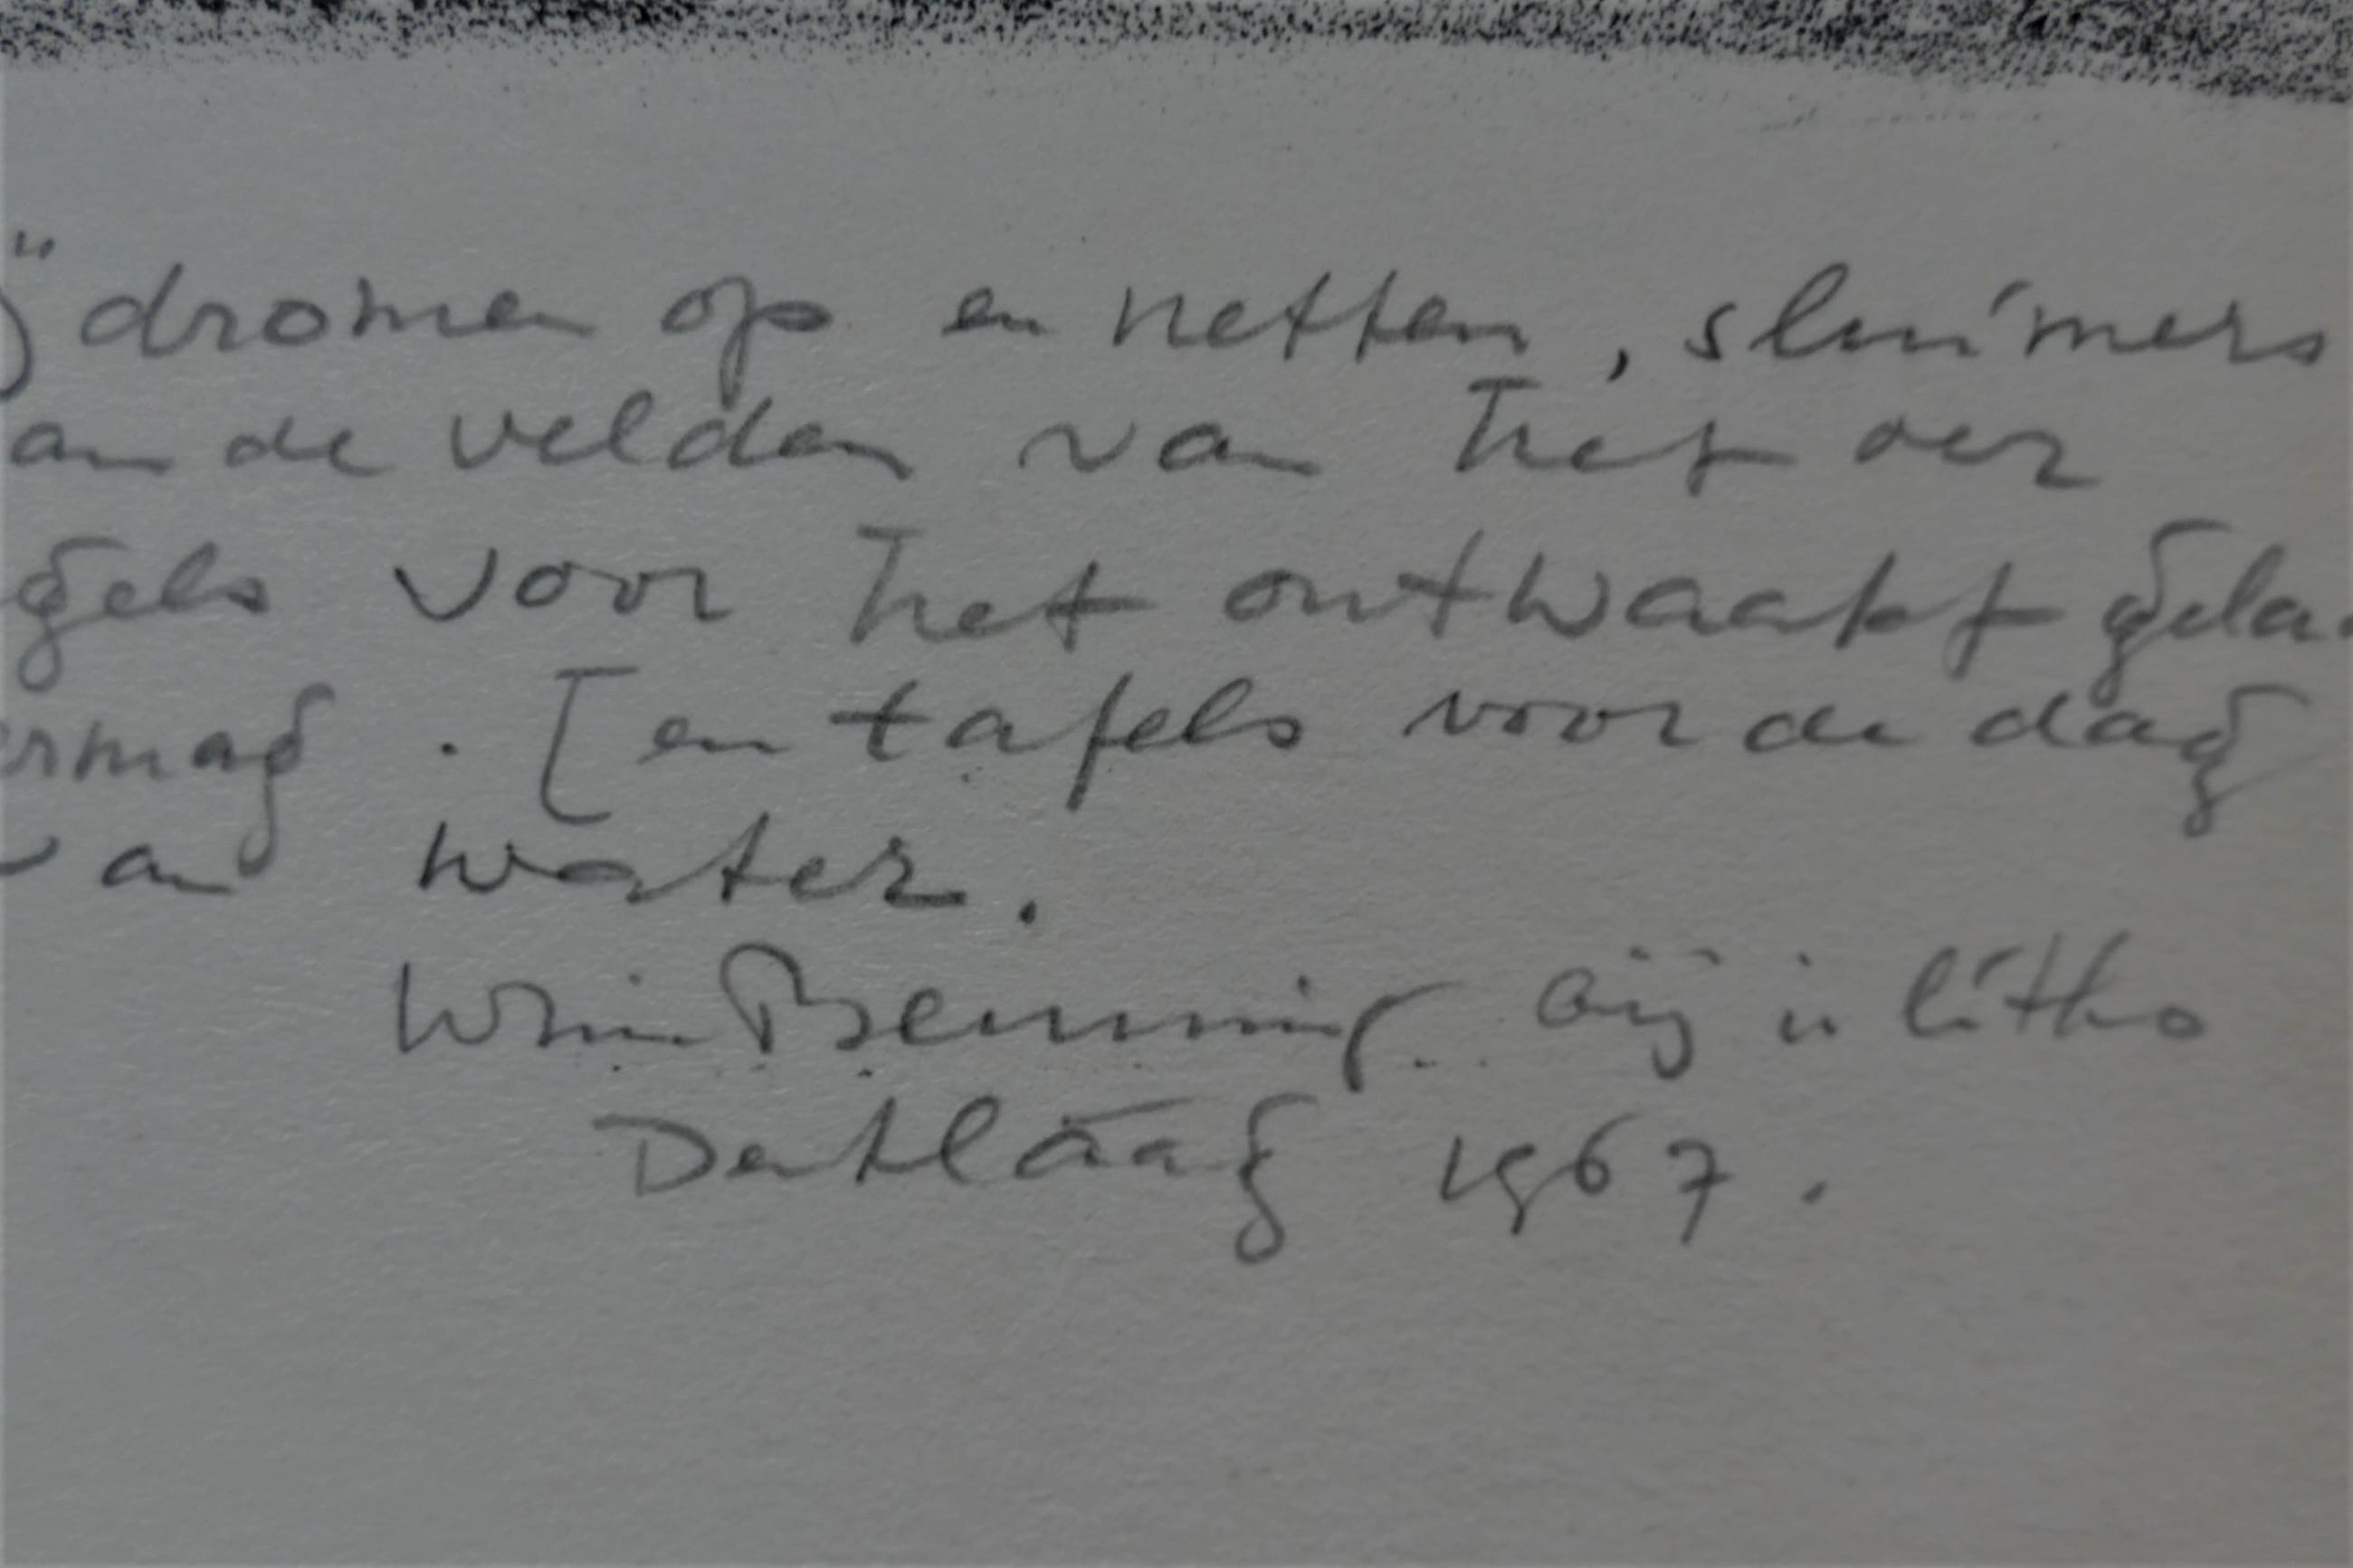 ij dromen op en netten, sluimers
an de velden van het oer
gels voor het ontwaakt gela
ermag . [en tafels voor de dag
van water.
Wim Benning bij 'n litho
Den Haag 1967.